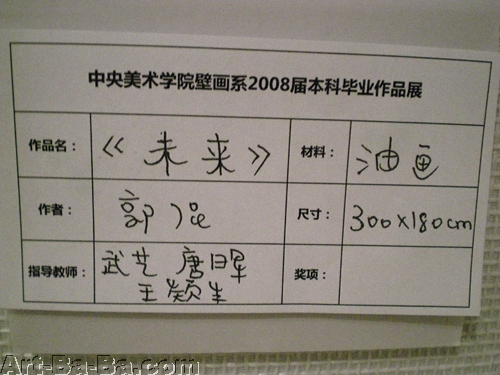 中央美术学院壁画系2008届本科毕业作品展
作品名： 《未来》 材料： 油画
作者： 郭 尺寸： 300×180cm
指导教师： 武艺 唐晖 奖项：
王颖生
Art-Ba-Ba.com